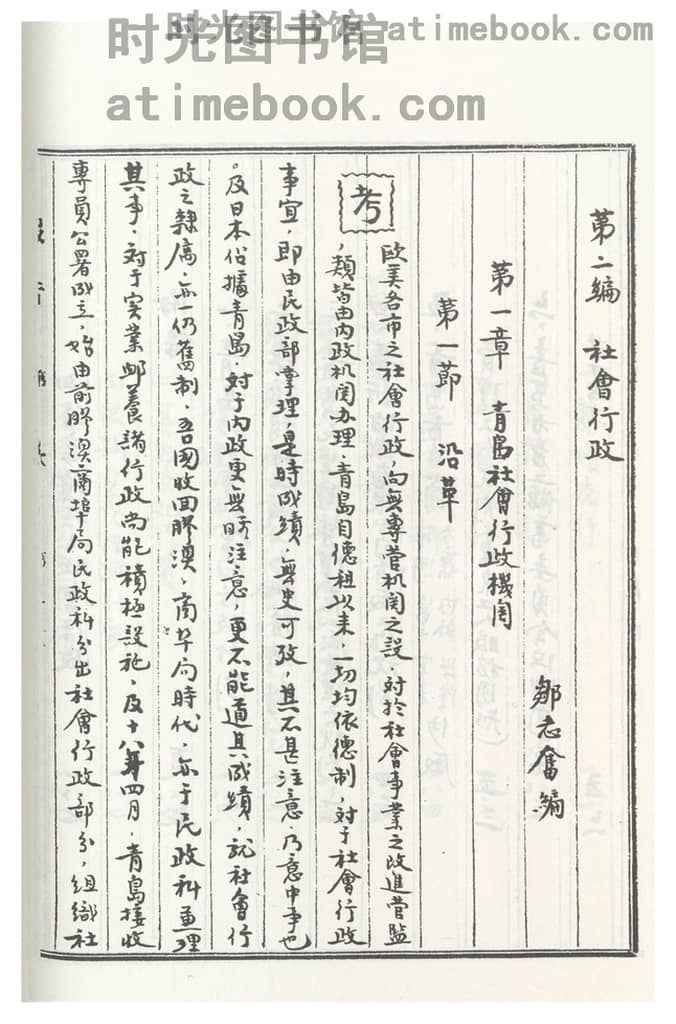 时光图书馆 atimebook.com
时光图书馆
atimebook.com
第二编 社會行政
鄒志奮编
第一章 青島社會行政機関
第一節 沿革
考
欧美各市之社會行政，向無專营机関之設，对於社會事業之改進营监
，類皆由内政机関办理，青島自德租以来，一切均依德制，对于社會行政
事宜，即由民政部掌理，是时成绩，無史可攷，其不甚注意，乃意中事也
。及日本佔據青島，对于内政更無暇注意，更不能道其成蹟，就社會行
政之隸属，亦一仍舊制，吾國收回膠澳，商华局時代，亦于民政科兼理
其事，对于实業邮養諸行政尚能積極設施，及十八年四月，青島接收
專員公署成立，始由前膠澳商埠局民政科分出社會行政部分，组織社